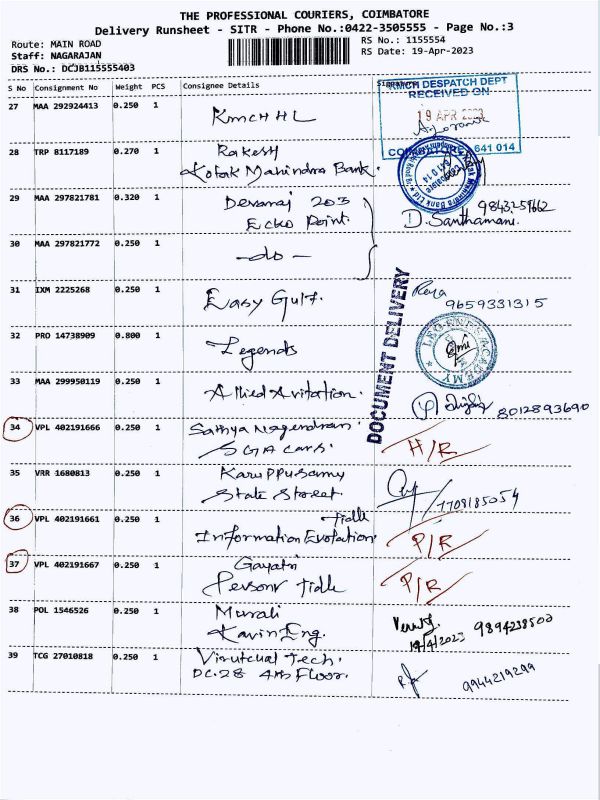 THE PROFESSIONAL COURIERS, COIMBATORE
Delivery Runsheet - SITR - Phone No.:0422-3505555 - Page No.:3
Route: MAIN ROAD
RS No.: 1155554
Staff: NAGARAJAN
RS Date: 19-Apr-2023
DRS No.: DCJB115555403
S No Consignment No Weight PCS Consignee Details
27 MAA 292924413 0.250 1 KMCH HL
KMCH DESPATCH DEPT
RECEIVED ON
19 APR 2023
COIMBATORE 641 014
28 TRP 8117189 0.270 1 Rakesh
Kotak Mahindra Bank.
29 MAA 297821781 0.320 1 Devaraj 203
Echo Point.
D. Santhamani
30 MAA 297821772 0.250 1 -do-
31 IXM 2225268 0.250 1 Easy Gulf.
9659331315
DOCUMENT DELIVERY
32 PRO 14738909 0.800 1 Legends
LEGENDS ACADEMY
33 MAA 299950119 0.250 1 Allied Avitation.
8012893690
34 VPL 402191666 0.250 1 Sathya Nagendran.
SGA Cars. H/R
35 VRR 1680813 0.250 1 Karuppusamy
State Street
7708185054
36 VPL 402191661 0.250 1 Tidle
Information Evolation P/R
37 VPL 402191667 0.250 1 Gayatri
Tidle P/R
38 POL 1546526 0.250 1 Murali
Kavin Eng.
19/4/2023 9894238500
39 TCG 27010818 0.250 1 Virutcual Tech.
DC.28 4th Floor.
9944219299